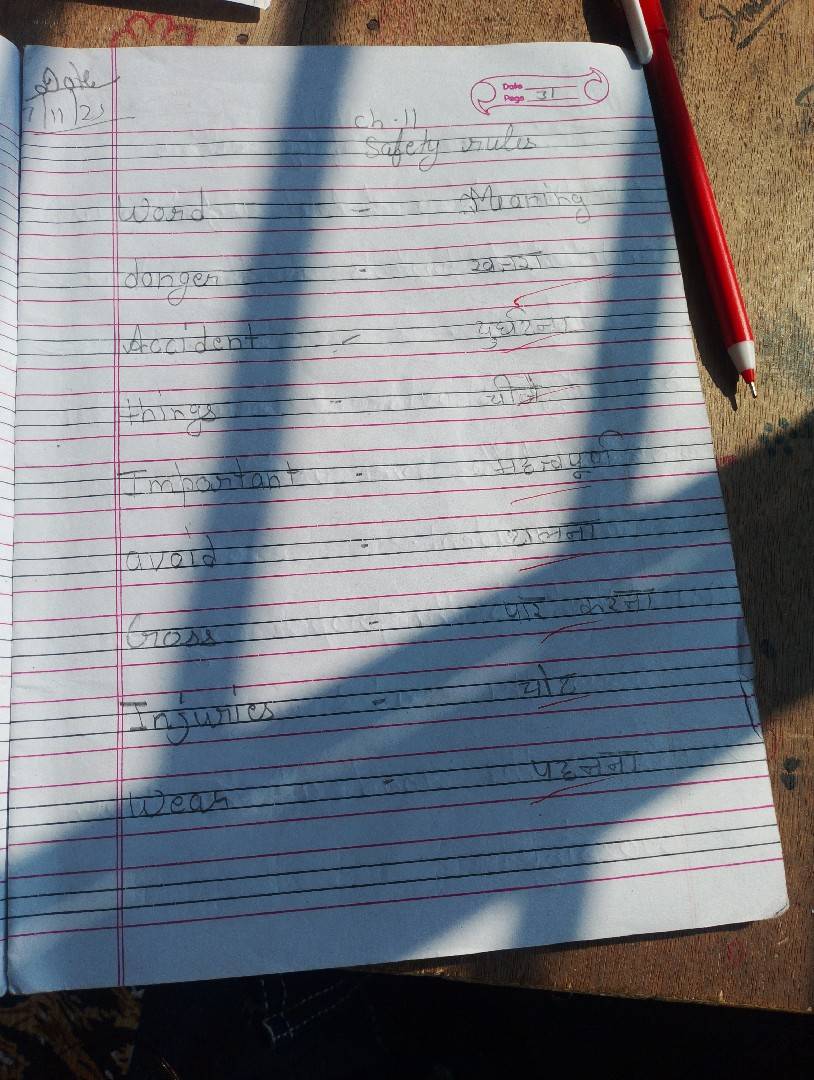 Date
7/11/25
Date
Page 31
Ch-11
Safety rules
Word - Meaning
danger - खतरा
Accident - दुर्घटना
things - चीजे
Important - महत्वपूर्ण
avoid - टालना
Cross - पार करना
Injuries - चोट
Wear - पहनना